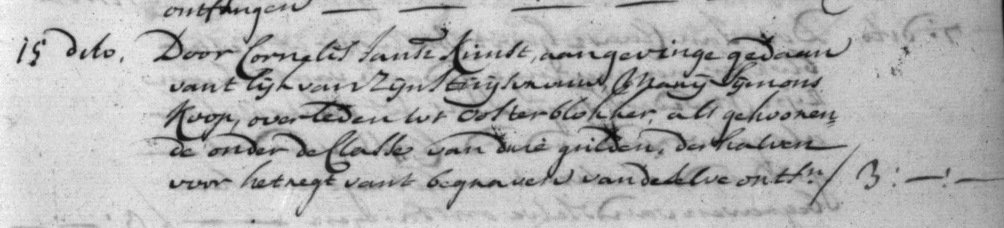 ontfangen — — — — —
15 dito. Door Cornelis Jansz Kunst, aangevinge gedaan
vant lijk van Zijn Huijsvrouw, Marij Sijmons
Koop, overleden tot Oosterblokker, als gehooren„
de onder de Classe van drie gulden, derhalven
voor het regt vant begraven van deselve ontfn / 3:—:—